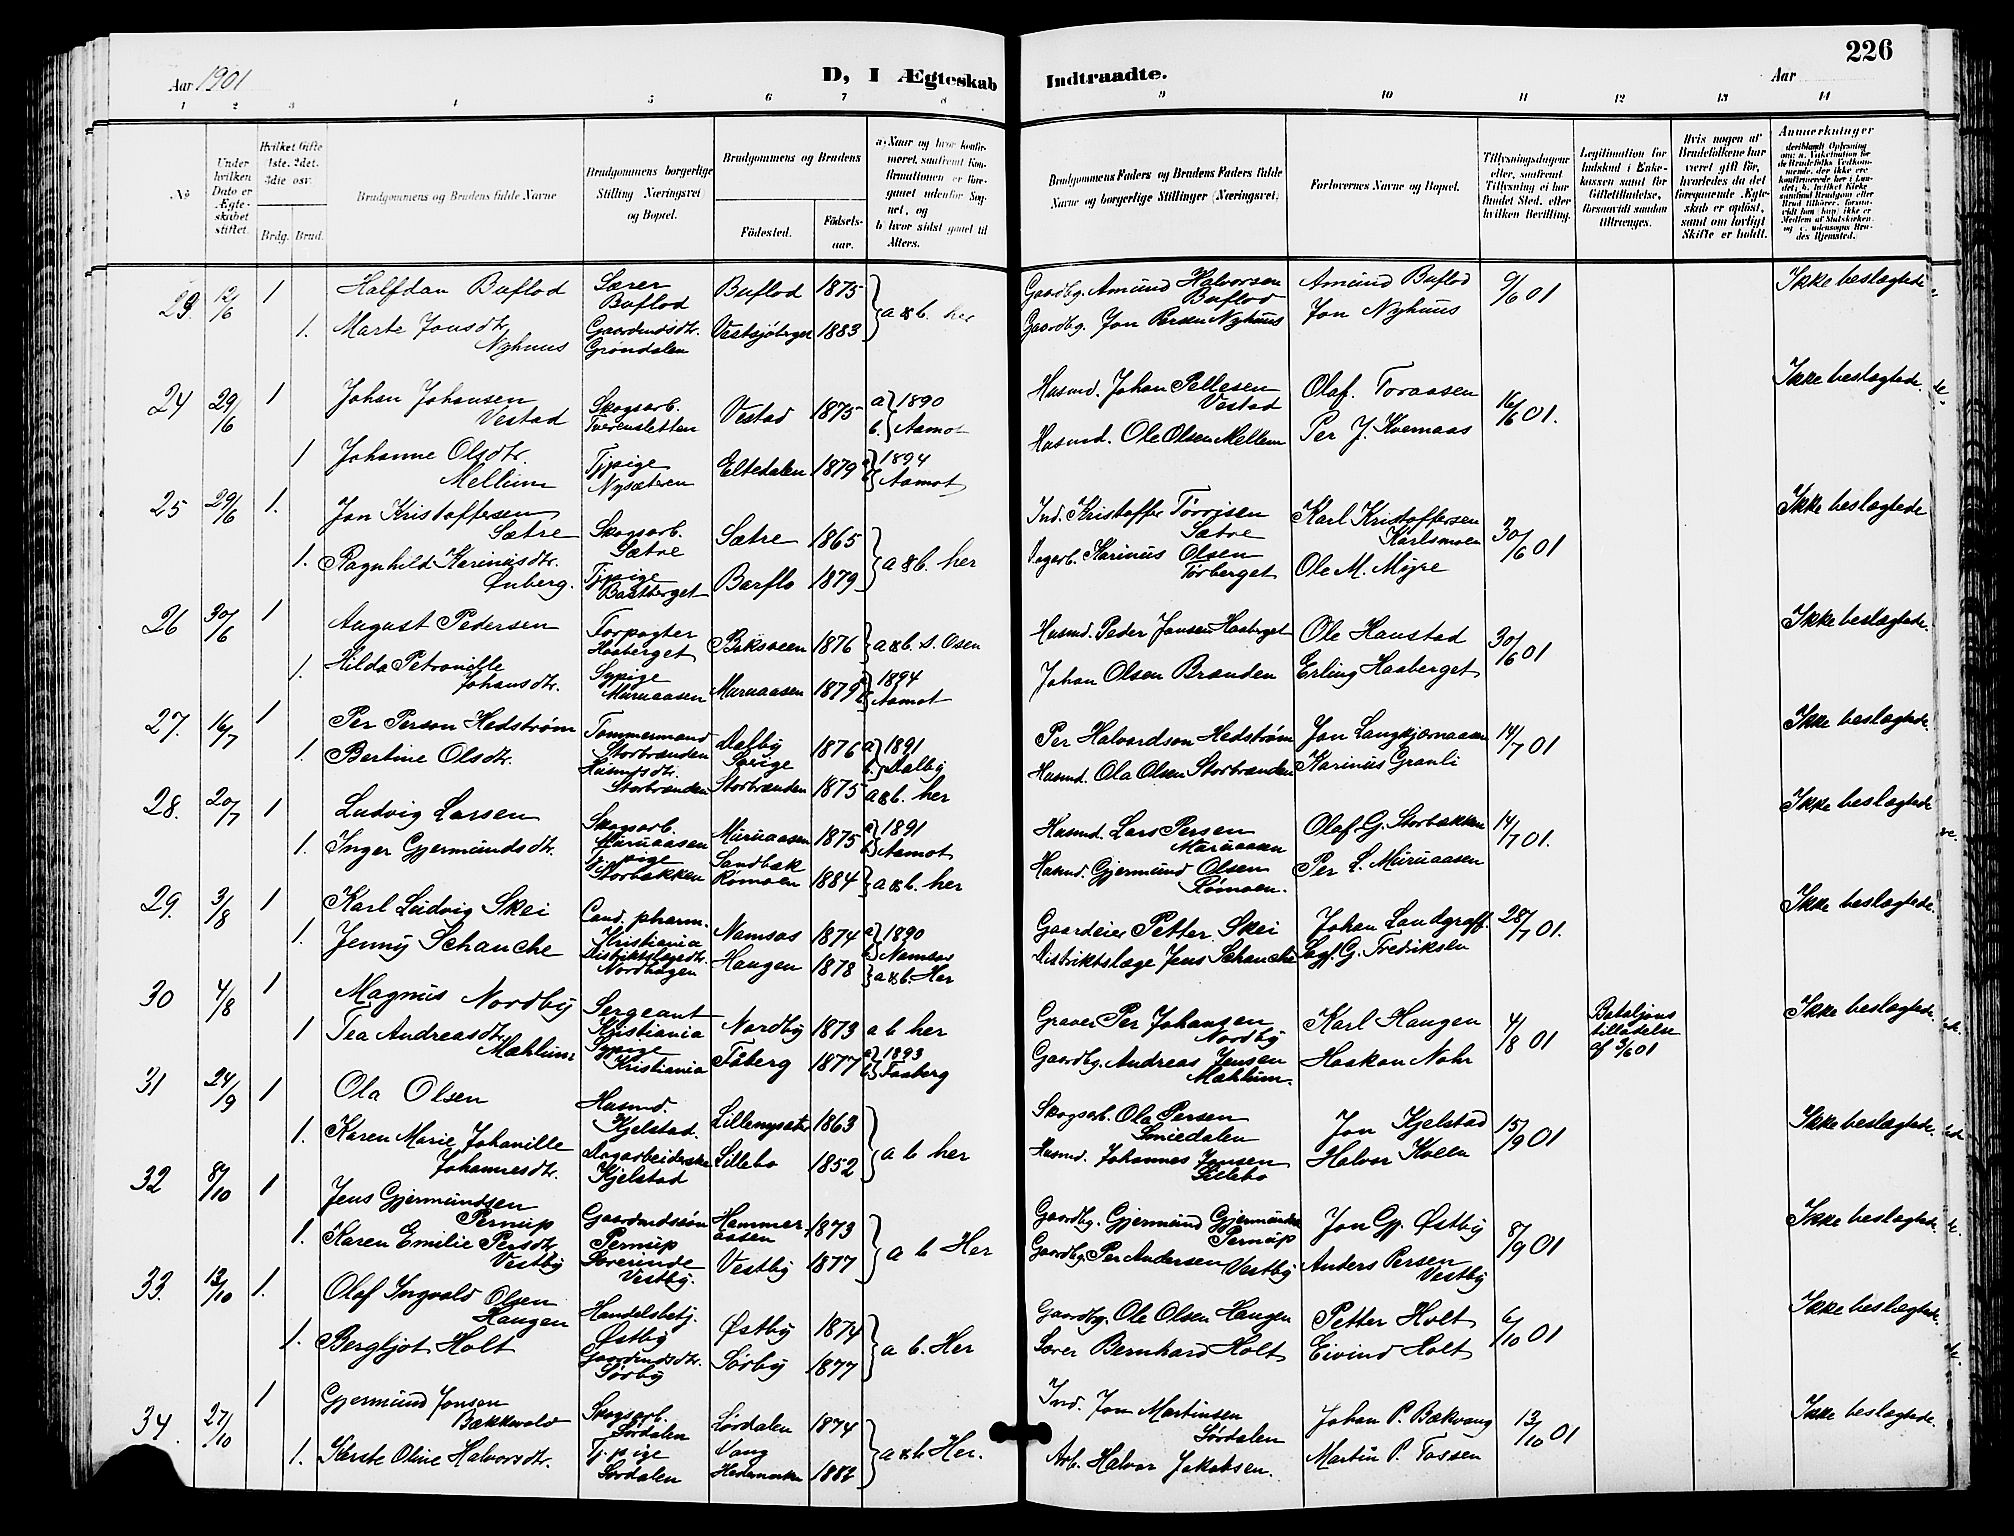 226
Aar 1901
D, I Ægteskab Indtraadte.
Aar
1 2 3 4 5 6 7 8 9 10 11 12 13 14
No
Under hvilken Dato er Ægteskabet stiftet.
Hvilket Gifte 1ste, 2det, 3die osv.
Brdg. Brud.
Brudgommens og Brudens fulde Navne
Brudgommens borgerlige Stilling (Næringsvei) og Bopæl.
Brudgommens og Brudens
Födested. Födselsaar.
a) Naar og hvor konfirmeret, saafremt Konfirmationen er foregaaet udenfor Sognet, og
b) hvor sidst gaaet til Alters.
Brudgommens Faders og Brudens Faders fulde Navne og borgerlige Stillinger (Næringsvei).
Forlovernes Navne og Bopæl.
Tillysningsdagene eller, saafremt Tillysning ei har fundet Sted, efter hvilken Bevilling.
Legitimation for Indskud i Enkekassen samt for Giftetilladelse, forsaavidt saadan tiltrænges.
Hvis nogen af Brudefolkene har været gift för, hvorledes da det foregaaende Ægteskab er oplöst, samt om lovligt Skifte er holdt.
Anmerkninger
23. 12/6 1 Halfdan Buflod Lærer Buflod Buflod 1875 a & b. her Gaardbg. Amund Halvorsen Buflod Amund Buflod 9/6 01 Ikke beslægtede
1. Marte Jonsdtr. Nyhuus Gaardmdsdtr. Grøndalen Vestsjøberget 1883 Gaardbg. Jon Persen Nyhuus Jon Nyhuus
24 29/6 1 Johan Johansen Vestad Skogsarb. Tverensletten Vestad 1875 a 1890 b. Aamot Husmd. Johan Pellesen Vestad Olaf. Toraasen 16/6 01. Ikke beslægtede.
1 Johanne Olsdtr. Mellum Tjpige Nysæteren Eltedalen 1879 1894 Aamot Husmd. Ole Olsen Mellem Per J. Kvernaas
25 29/6 1. Jon Kristoffersen Sætre Skogsarb. Sætre Sætre 1865 a & b. her Ind. Kristoffer Tørrisen Sætre Karl Kristoffersen Karlsmoen 30/6 01 Ikke beslægtede
1. Ragnhild Karinusdtr. Ønberg. Tjpige Bastberget Barflo 1879 Dagarb. Karinus Olsen Tørberget Ole M. Myre
26 30/6 1 August Pedersen Forpagter Haaberget 1876 a & b. S. Osen Husmd. Peder Jonsen Haaberget Ole Haustad 30/6 01 Ikke beslægtede.
1. Hilda Petronille Johansdtr. Sypige Muruaasen Muruaasen 1879 1894 Aamot Johan Olsen Branden Erling Haaberget
27. 16/7 1 Per Person Hedstrøm Tømmermand Storbranden Dalby Sverige 1876 a 1891 b. Dalby Per Halvardson Hedstrøm Jon 14/7 01 Ikke beslægtede.
1. Bertine Olsdtr. Husmdsdtr. Storbranden Storbranden 1875 a & b. her Husmd. Ola Olsen Storbranden Karinus Granli
28. 20/7 1 Ludvig Larsen Skogsarb. Muruaasen Muruaasen 1875 1891 Aamot Husmd. Lars Persen Muruaasen Olaf G. Storbækken 14/7 01. Ikke beslægtede
1. Inger Gjermundsdtr. Tjpige Storbækken Sandbak Rømoen 1884 a & b. her Husmd. Gjermund Olsen Rømoen. Per L. Muruaasen
29. 3/8 1 Karl Ludvig Skei Cand. pharm. Kristiania Namsos 1874 a 1890 b Namsos Gaardeier Petter Skei Johan Landgraff. 28/7 01. Ikke beslægtede.
1. Jenny Schanche Distriktslægedtr. Nordhagen Haugen 1878 a & b. Her Distriktslæge Jens Schanche Sagf. G. Fredriksen
30 4/8 1 Magnus Nordby Sergeant Kristiania Nordby 1873 a b her Graver Per Johansen Nordby Karl Haugen 4/8 01 Betaljons tilladelse af 3/6 01 Ikke beslægtede.
1 Tea Andreasdtr. Mæhlum Sypige Kristiania Fåberg 1877 1893 Faaberg Gaardbg. Andreas Jensen Mæhlum. Haakon Nohr
31 24/9 1 Ola Olsen Husmd. Kjelstad. Lillemysæter 1863 a b her Skogsarb. Ola Persen Smiedalen Jon Kjelstad 15/9 01 Ikke beslægtede.
1. Karen Marie Johanille Johannesdtr. Dagarbeiderske Kjelstad Lillebo 1852 Husmd. Johannes Jonsen Lillebo Halvor Kolle
32 8/10 1 Jens Gjermundsen Pernup Gaardmdssøn Pernup Hammeraasen 1873 a b Her Gaardbg. Gjermund Gjermundsen Pernup Jon Gj. Østby 8/9 01 Ikke beslægtede.
1. Karen Emilie Persdtr. Vestby Lærerinde Vestby. Vestby 1877 Gaardbg. Per Andersen Vestby Anders Persen Vestby
33. 13/10 1. Olaf Ingvald Olsen Haugen Handelsbetj. Østby Østby 1874 a b. Her Gaardbg. Ole Olsen Haugen Petter Holt 6/10 01 Ikke beslægtede.
1. Bergljot Holt Gaardmdsdtr. Sørby Sørby 1877 Lærer Bernhard Holt Eivind Holt
34. 27/10 1 Gjermund Jonsen Bækkevold Skogsarb. Lørdalen Lørdalen 1874 a & b Her. Ind. Jon Martinsen Lørdalen Johan P. Bækvang 13/10 01 Ikke beslægtede.
1. Kerste Oline Halvorsdtr. Tjpige Lørdalen Vang Hedemarken 1882 Arb. Halvor Jakobsen. Martin P. Tossen